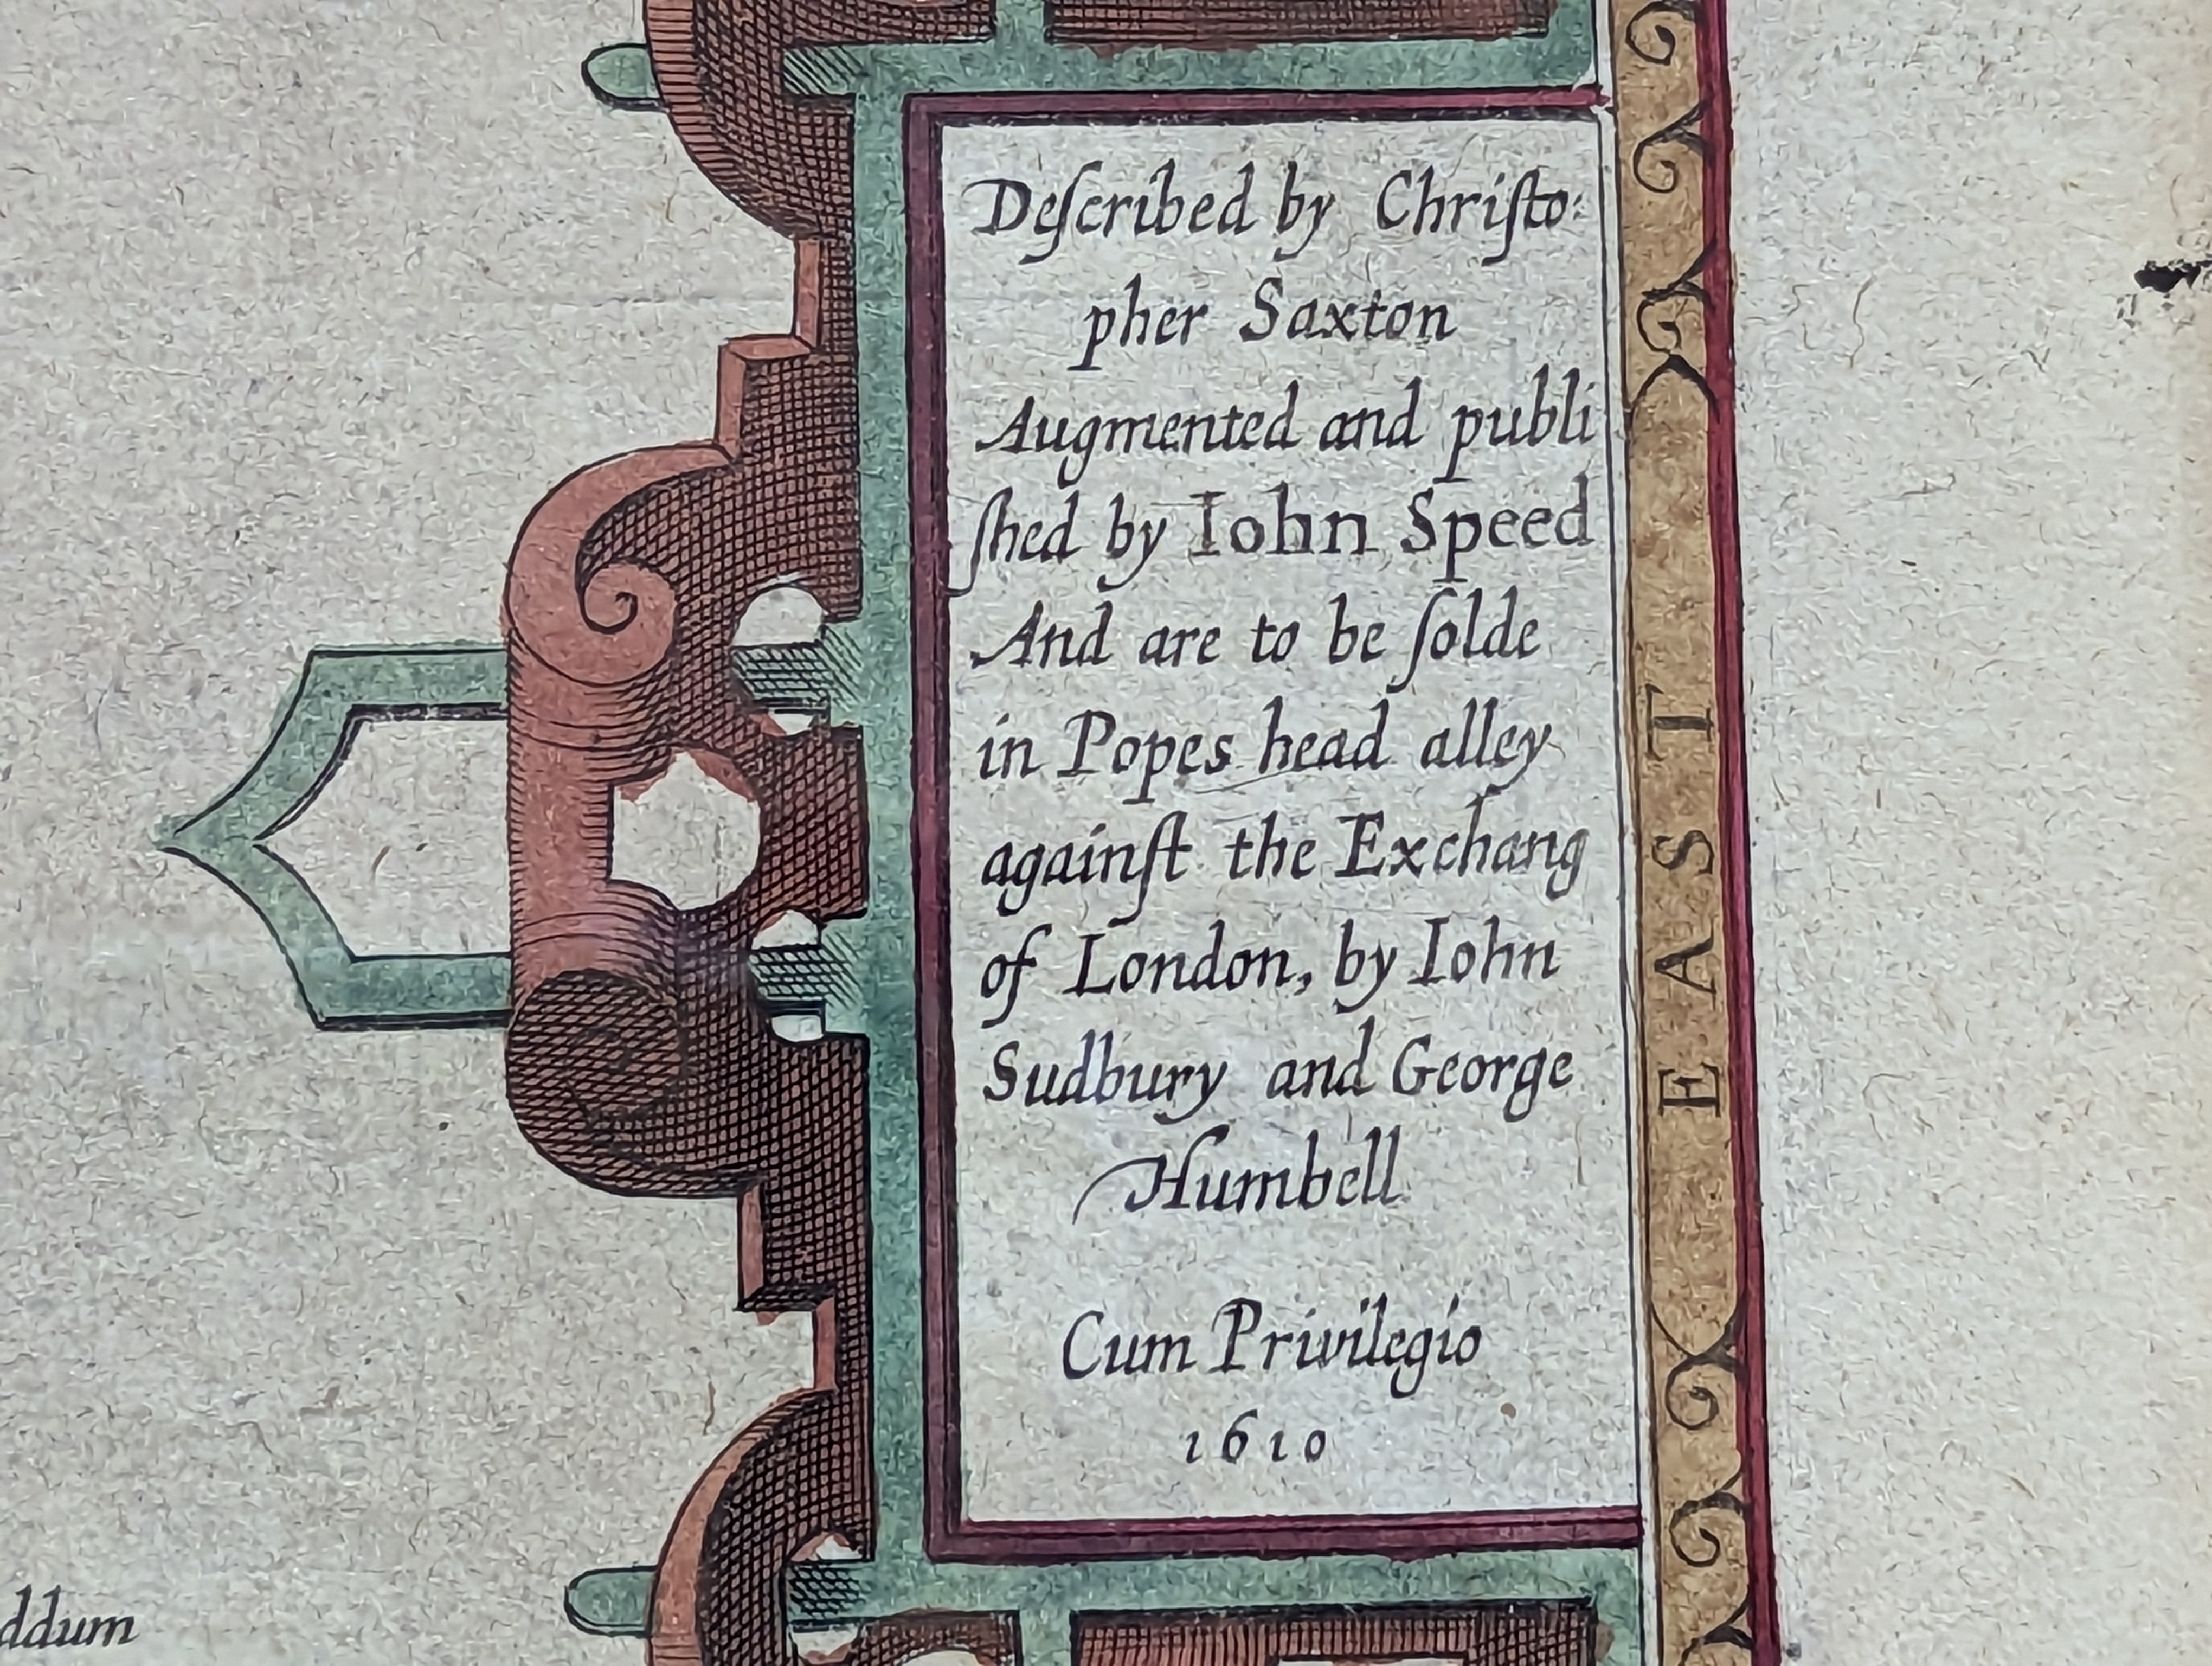 Deſcribed by Chriſto:
pher Saxton
Augmented and publi
ſhed by Iohn Speed
And are to be ſolde
in Popes head alley
againſt the Exchang
of London, by Iohn
Sudbury and George
Humbell
Cum Privilegio
1610
EAST
ddum